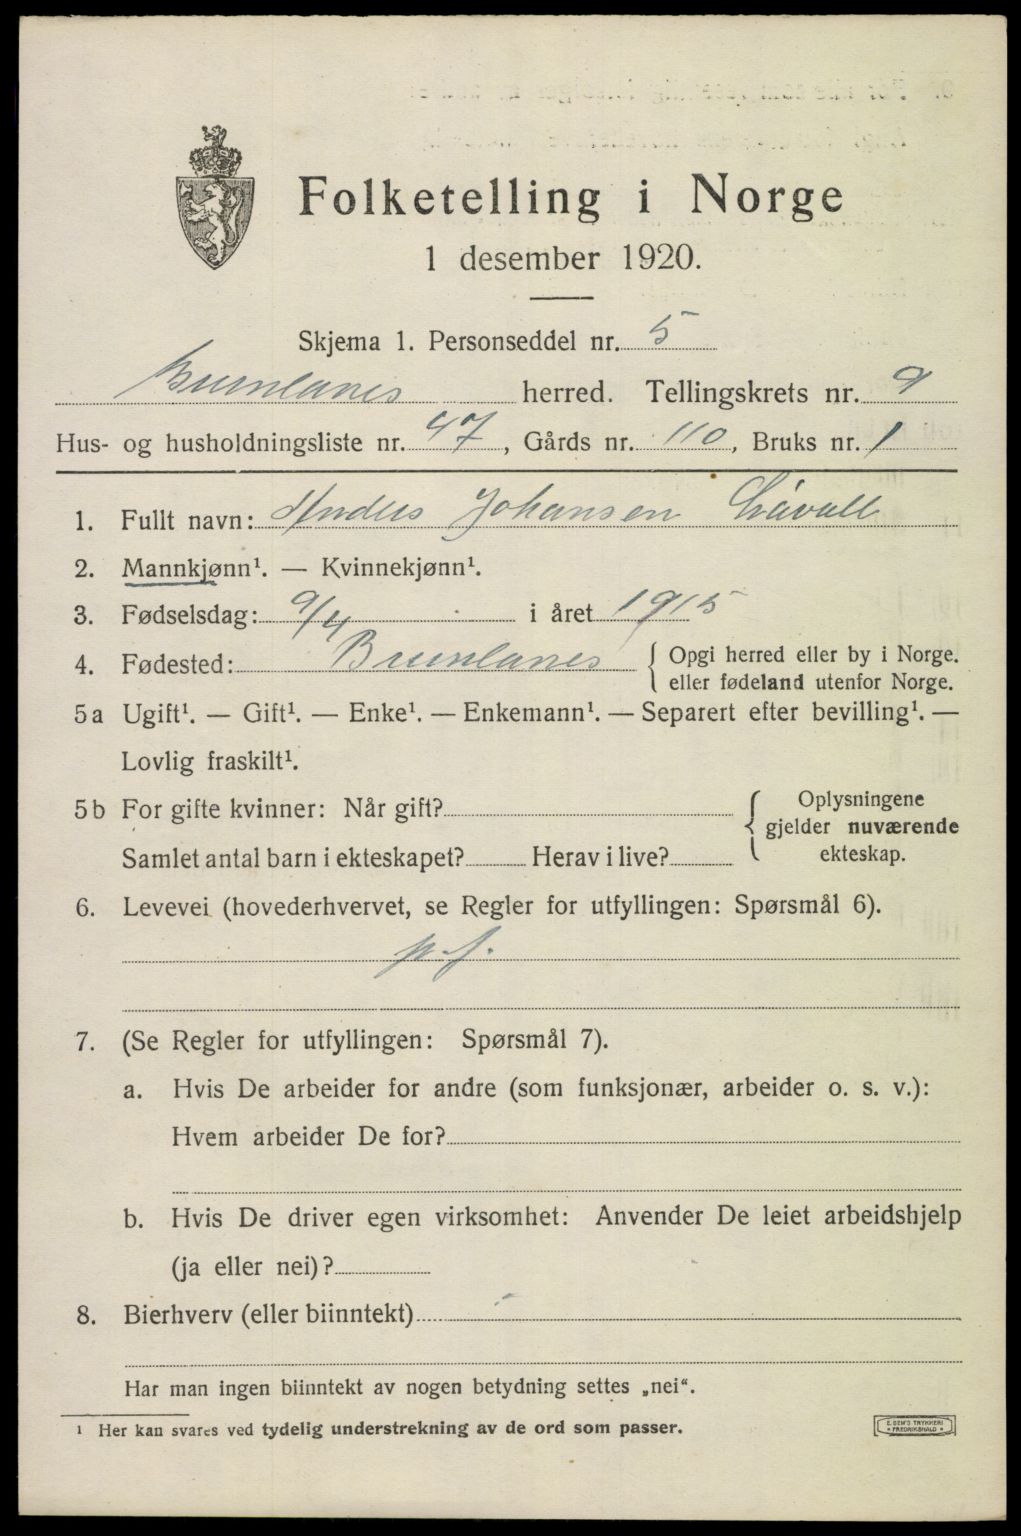 Folketelling i Norge
1 desember 1920.
Skjema 1. Personseddel nr. 5
Brunlanes herred. Tellingskrets nr. 9
Hus- og husholdningsliste nr. 47, Gårds nr. 110, Bruks nr. 1
1. Fullt navn: Anders Johansen
2. Mannkjønn¹. — Kvinnekjønn¹.
3. Fødselsdag: 9/4 i året 1915
4. Fødested: Brunlanes { Opgi herred eller by i Norge.
eller fødeland utenfor Norge.
5a Ugift¹. — Gift¹. — Enke¹. — Enkemann¹. — Separert efter bevilling¹. —
Lovlig fraskilt¹.
5b For gifte kvinner: Når gift? { Oplysningene
gjelder nuværende
Samlet antal barn i ekteskapet? Herav i live? ekteskap.
6. Levevei (hovederhvervet, se Regler for utfyllingen: Spørsmål 6).
7. (Se Regler for utfyllingen: Spørsmål 7).
a. Hvis De arbeider for andre (som funksjonær, arbeider o. s. v.):
Hvem arbeider De for?
b. Hvis De driver egen virksomhet: Anvender De leiet arbeidshjelp
(ja eller nei)?
8. Bierhverv (eller biinntekt)
Har man ingen biinntekt av nogen betydning settes „nei“.
¹ Her kan svares ved tydelig understrekning av de ord som passer.
E. SEM'S TRYKKERI
* FREDRIKSHALD *